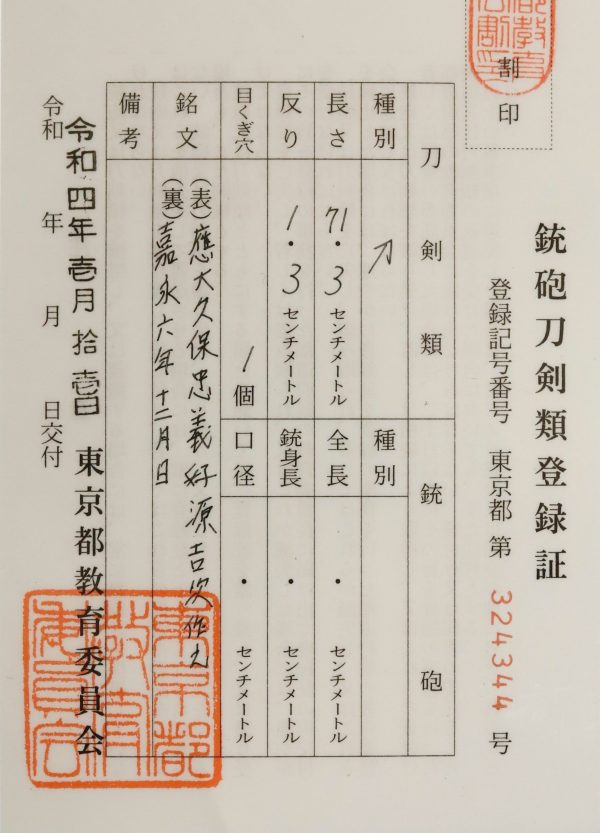 銃砲刀剣類登録証
登録記号番号 東京都 第 324344 号
割印
刀剣類
銃砲
種別 刀
種別
長さ 71・3 センチメートル
全長 ・ センチメートル
反り 1・3 センチメートル
銃身長 ・ センチメートル
目くぎ穴 1個
口径 ・ センチメートル
銘文
(表)應大久保忠義好源吉次作之
(裏)嘉永六年十二月日
備考
令和四年壱月拾壱日
令和 年 月 日交付
東京都教育委員会
東京都教育委員会